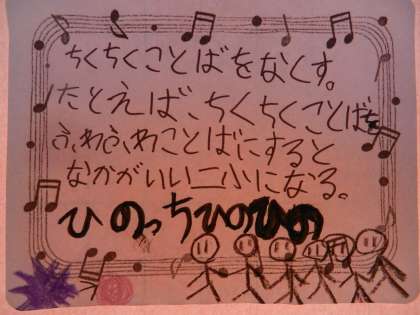 ちくちくことばをなくす。
たとえば、ちくちくことばを
ふわふわことばにすると
なかがいい二小になる。
ひのっちひのひの